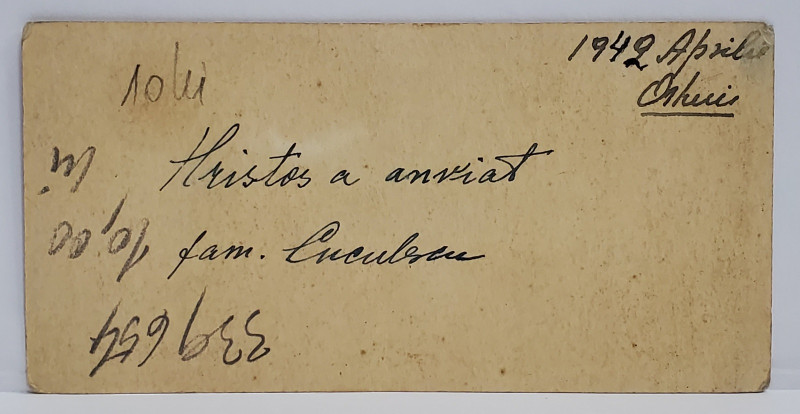 1942 Aprilie
10 lei
Hristos a anviat
fam. Cuculescu
10,00
lei